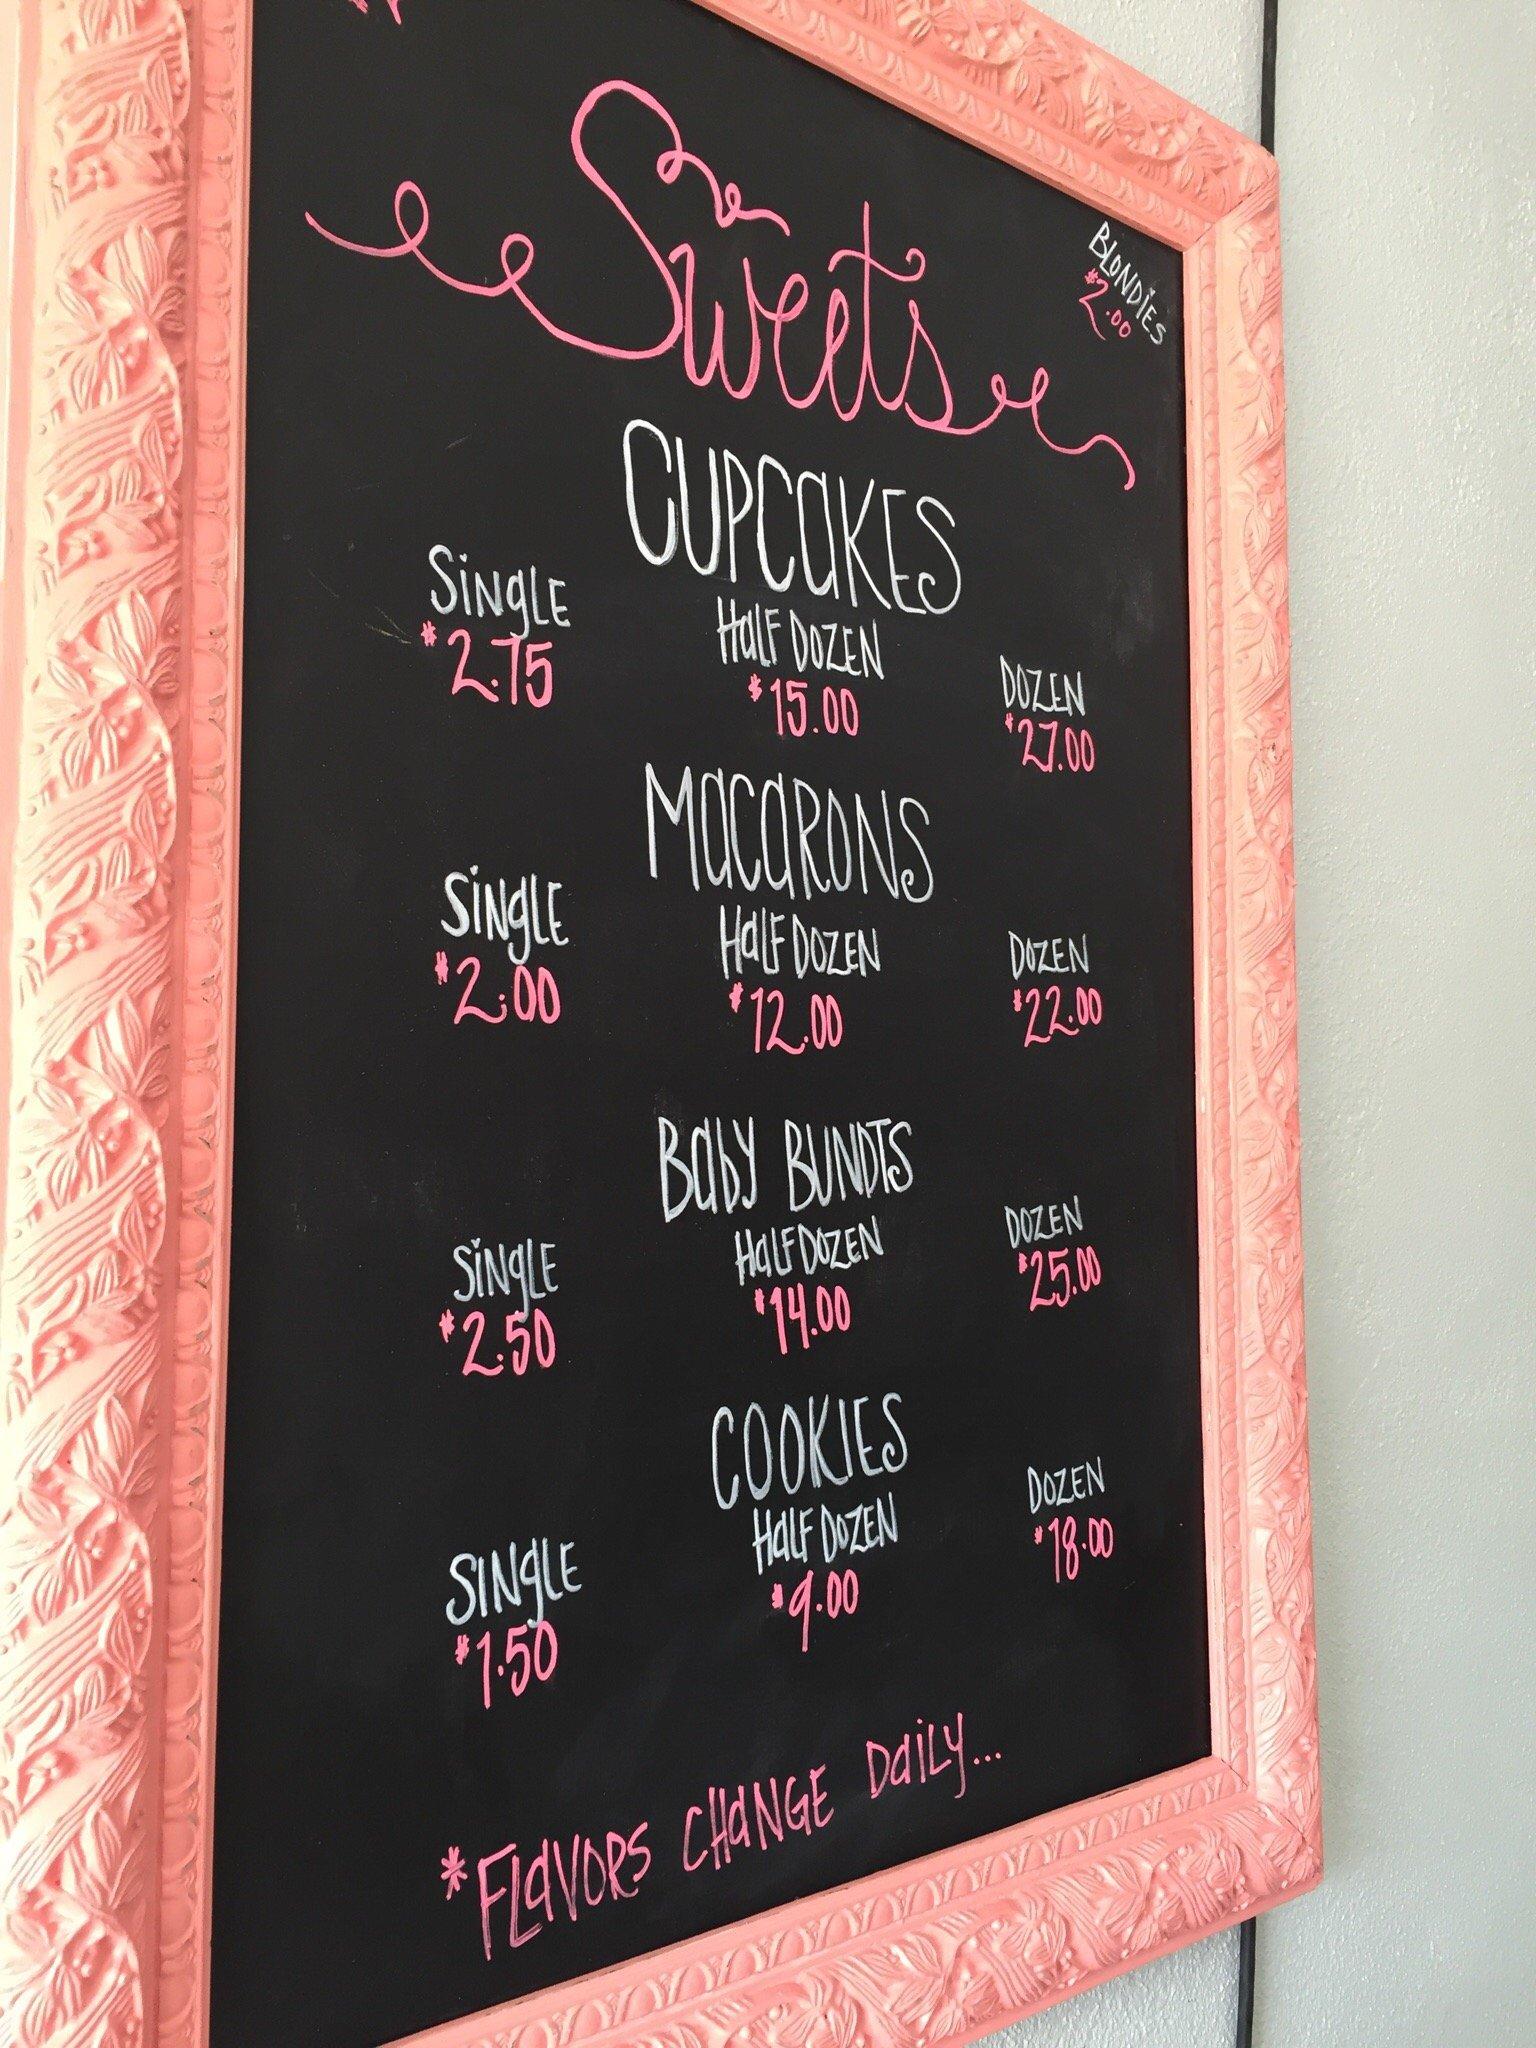 Sweets
BLONDIES
$2.00
CUPCAKES
SINGLE HALF DOZEN DOZEN
$2.75 $15.00 $27.00
MACARONS
SINGLE HALF DOZEN DOZEN
$2.00 $12.00 $22.00
BABY BUNDTS
SINGLE HALF DOZEN DOZEN
$2.50 $14.00 $25.00
COOKIES
SINGLE HALF DOZEN DOZEN
$1.50 $9.00 $18.00
*FLAVORS CHANGE DAILY...